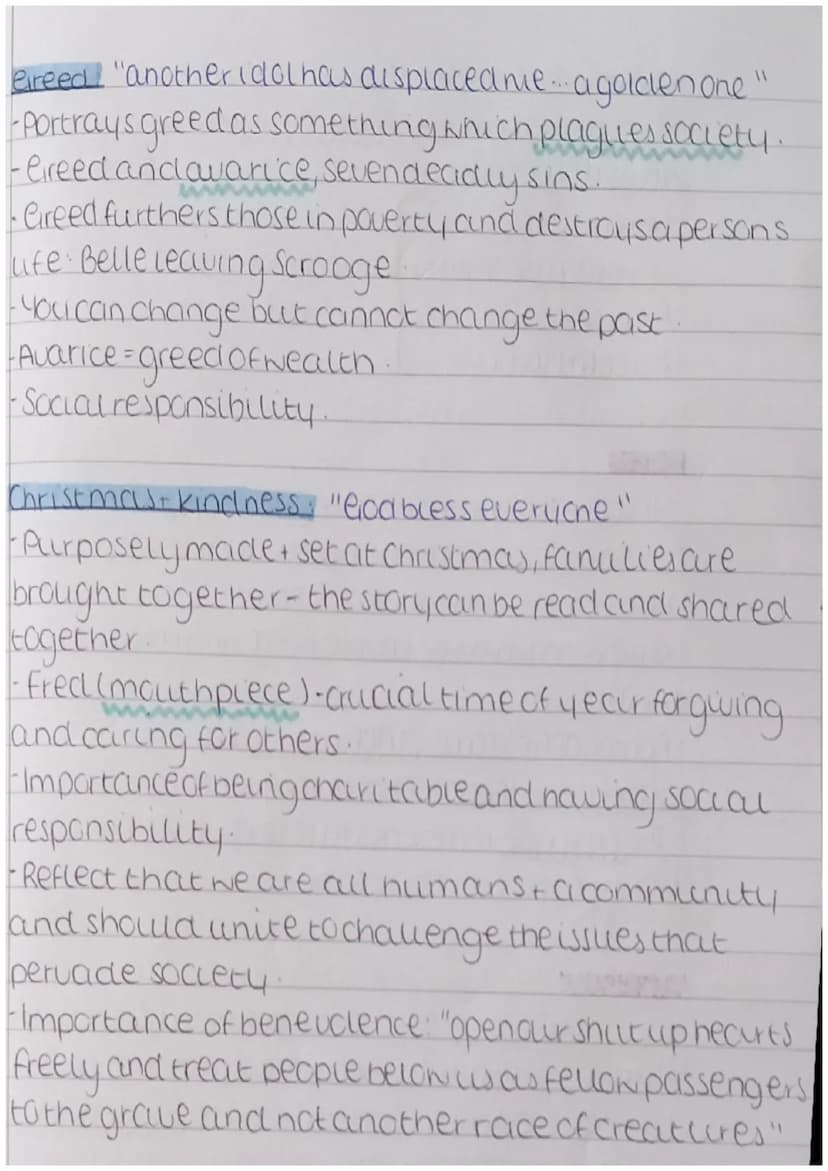 Greed: "another idol has displaced me... a golden one"
-Portrays greed as something which plagues society.
-Greed and avarice, seven deadly sins.
-Greed furthers those in poverty and destroys a persons
life. Belle leaving Scrooge.
-You can change but cannot change the past.
-Avarice = greed of wealth.
-Social responsibility.
Christmas + kindness: "God bless everyone"
-Purposely made + set at Christmas, families are
brought together - the story can be read and shared
together.
-Fred (mouthpiece) - crucial time of year for giving
and caring for others.
-Importance of being charitable and having social
responsibility.
-Reflect that we are all humans + a community
and should unite to challenge the issues that
pervade society.
-Importance of benevolence: "open our shut up hearts
freely and treat people below us as fellow passengers
to the grave and not another race of creatures"